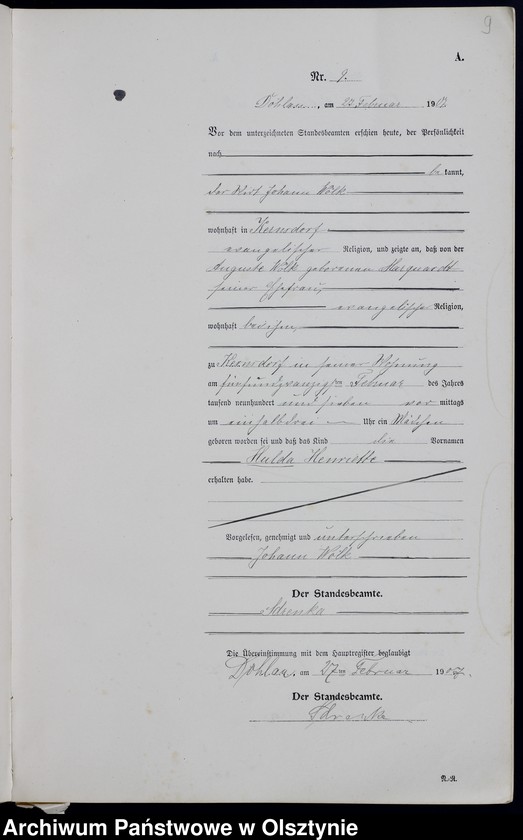 9
A.
Nr. 9.
Döhlau, am 27 Februar 1907
Vor dem unterzeichneten Standesbeamten erschien heute, der Persönlichkeit
nach
bekannt,
der Wirt Johann Wölk
wohnhaft in Kernsdorf
evangelischer Religion, und zeigte an, daß von der
Auguste Wölk geborenen Marquardt
seiner Ehefrau,
evangelischer Religion,
wohnhaft bei ihm,
zu Kernsdorf in seiner Wohnung
am fünfundzwanzigten Februar des Jahres
tausend neunhundert und sieben vor mittags
um einhalbdrei Uhr ein Mädchen
geboren worden sei und daß das Kind die Vornamen
Hulda Henriette
erhalten habe.
Vorgelesen, genehmigt und unterschrieben
Johann Wölk
Der Standesbeamte.
Die Übereinstimmung mit dem Hauptregister beglaubigt
Döhlau, am 27ten Februar 1907.
Der Standesbeamte.
Archiwum Państwowe w Olsztynie